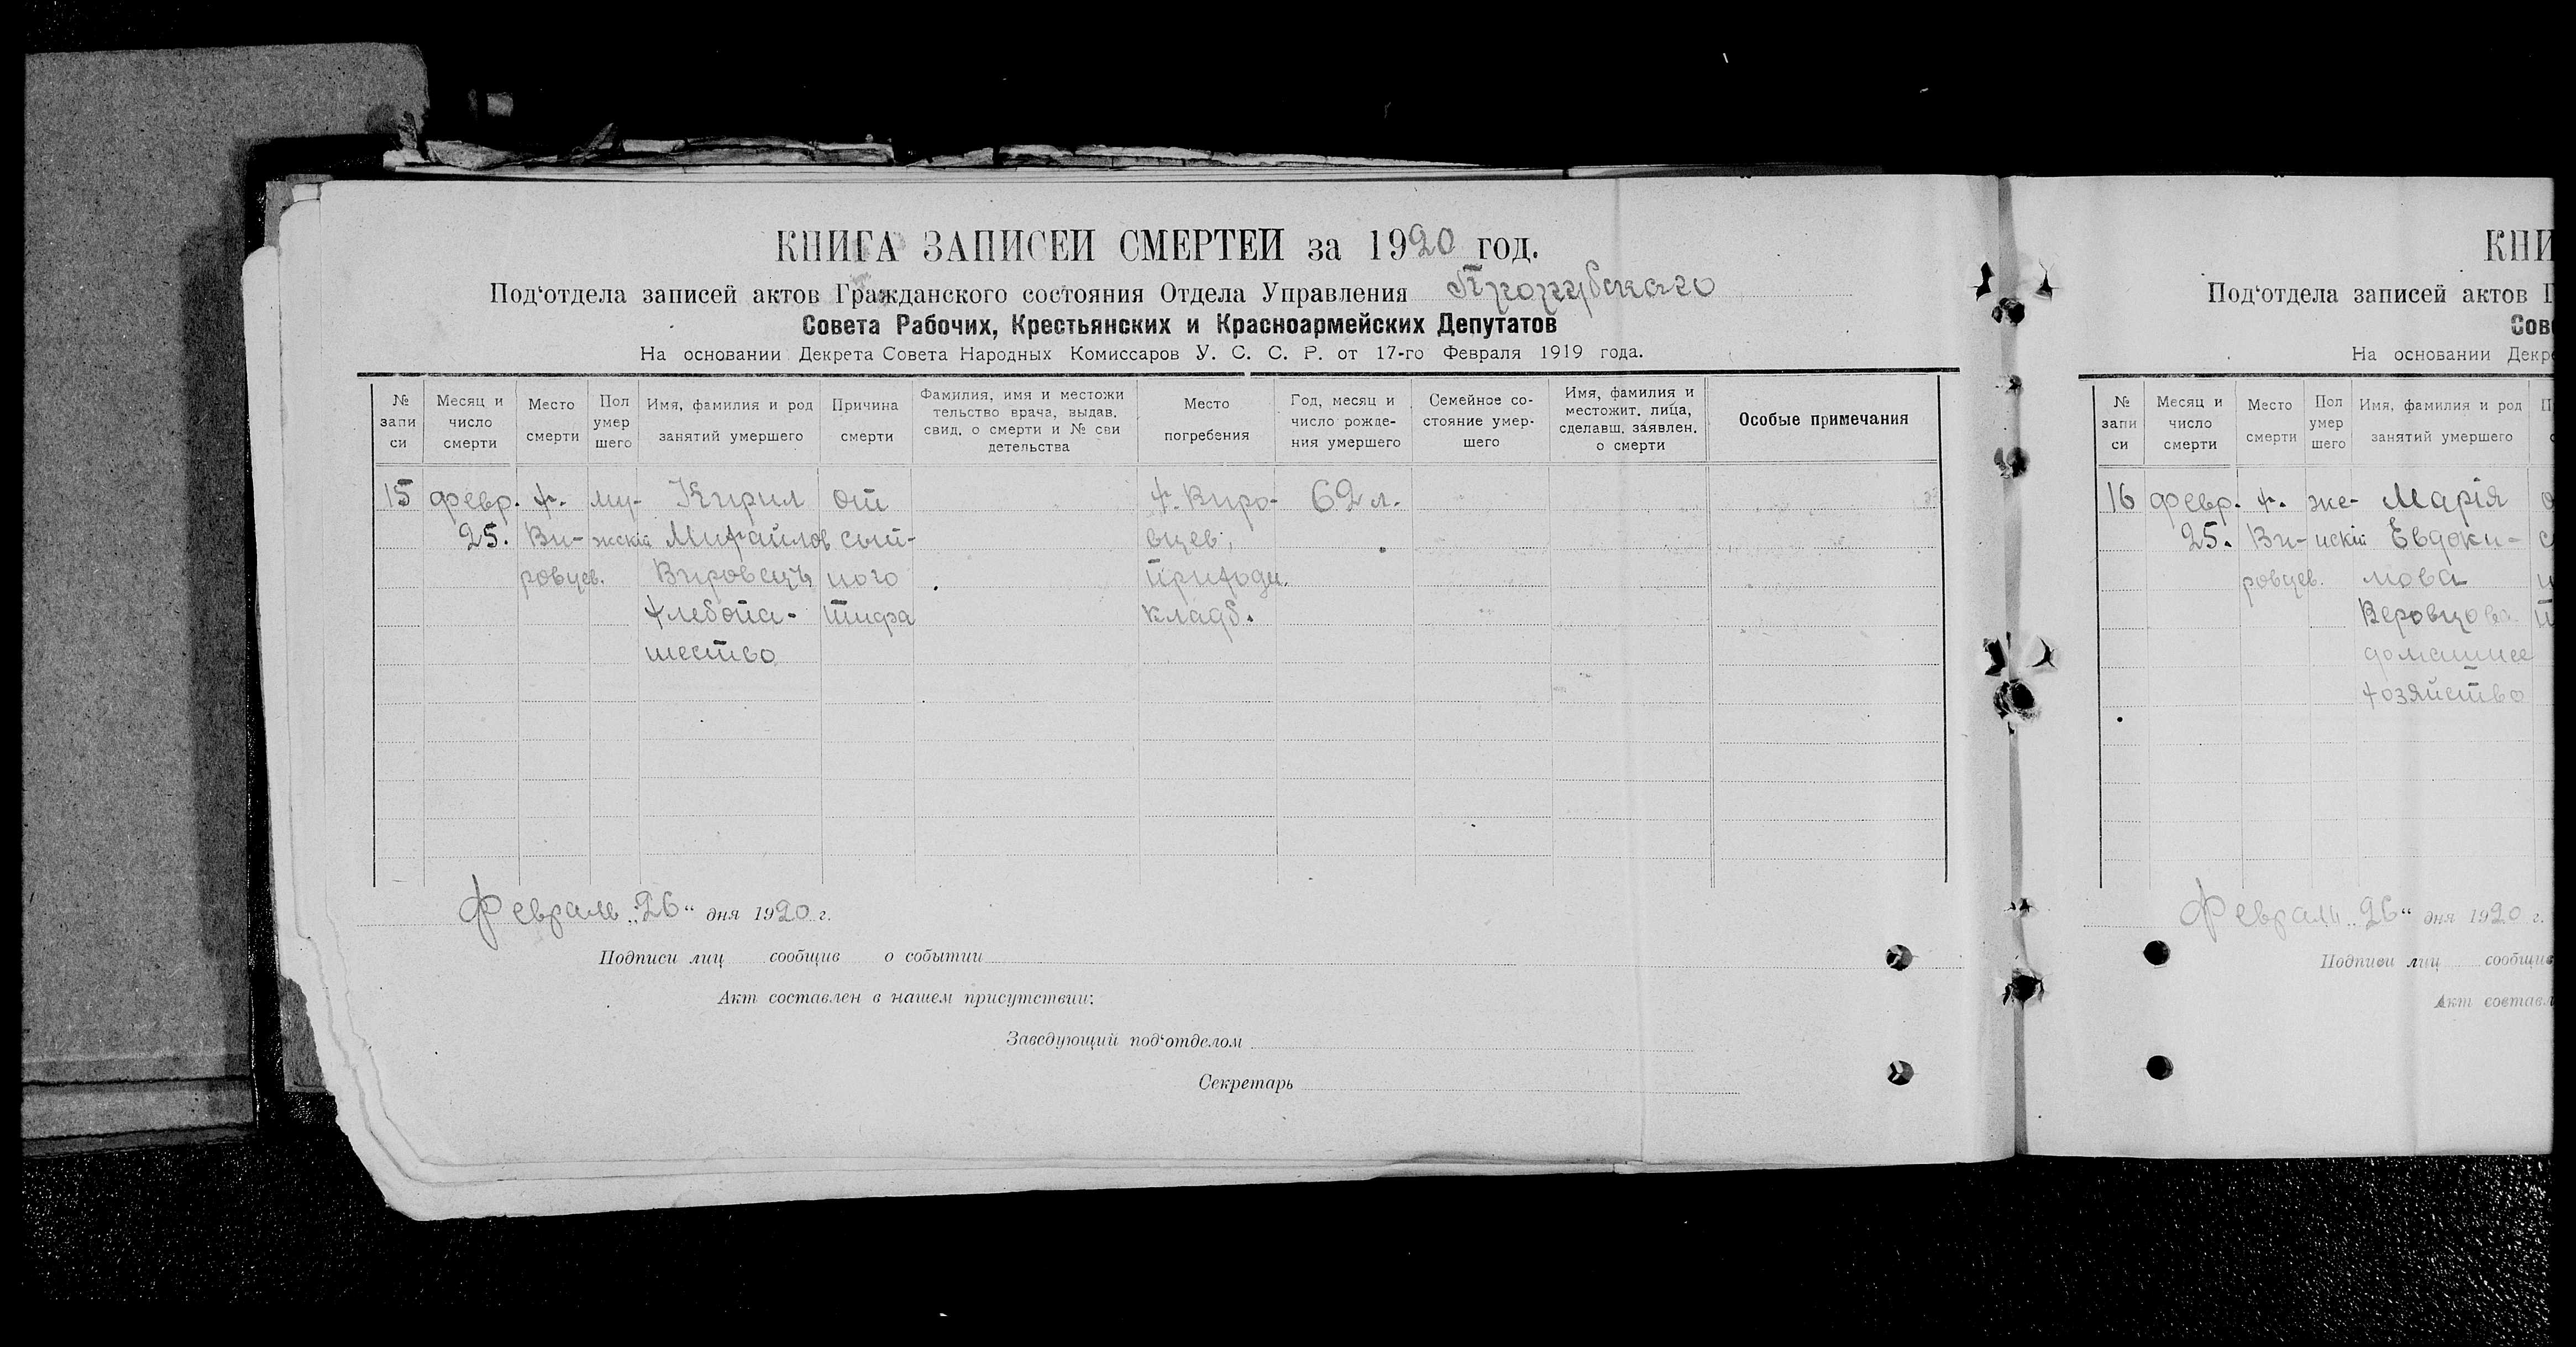 КНИГА ЗАПИСЕЙ СМЕРТЕЙ за 1920 год.
Под‘отдела записей актов Гражданского состояния Отдела Управления
Совета Рабочих, Крестьянских и Красноармейских Депутатов
На основании Декрета Совета Народных Комиссаров У. С. С. Р. от 17-го Февраля 1919 года.
№ запи си
Месяц и число смерти
Место смерти
Пол умер шего
Имя, фамилия и род занятий умершего
Причина смерти
Фамилия, имя и местожи тельство врача, выдав. свид. о смерти и № сви детельства
Место погребения
Год, месяц и число рожде- ния умершего
Семейное со- стояние умер- шего
Имя, фамилия и местожит. лица, сделавш. заявлен. о смерти
Особые примечания
15 февр. х. му- Кирил от х. Виро- 62 л.
25. Ви- жскій Михайлов сып- вцев,
ровцев. Вировецъ ного приходи.
хлебопа- тифа кладб.
шество
Февраль „26“ дня 1920 г.
Подписи лиц сообщив о событии
Акт составлен в нашем присутствии:
Заведующий под‘отделом
Секретарь
КНИ
Под‘отдела записей актов Г
Сов
На основании Декре
№ запи си
Месяц и число смерти
Место смерти
Пол умер шего
Имя, фамилия и род занятий умершего
16 февр. х. же- Марія
25. Ви- нскій Евдоки-
ровцев. мова
Веровцова
домашнее
хозяйство
Феврали „26“ дня 1920 г.
Подписи лиц сообщив
Акт составл